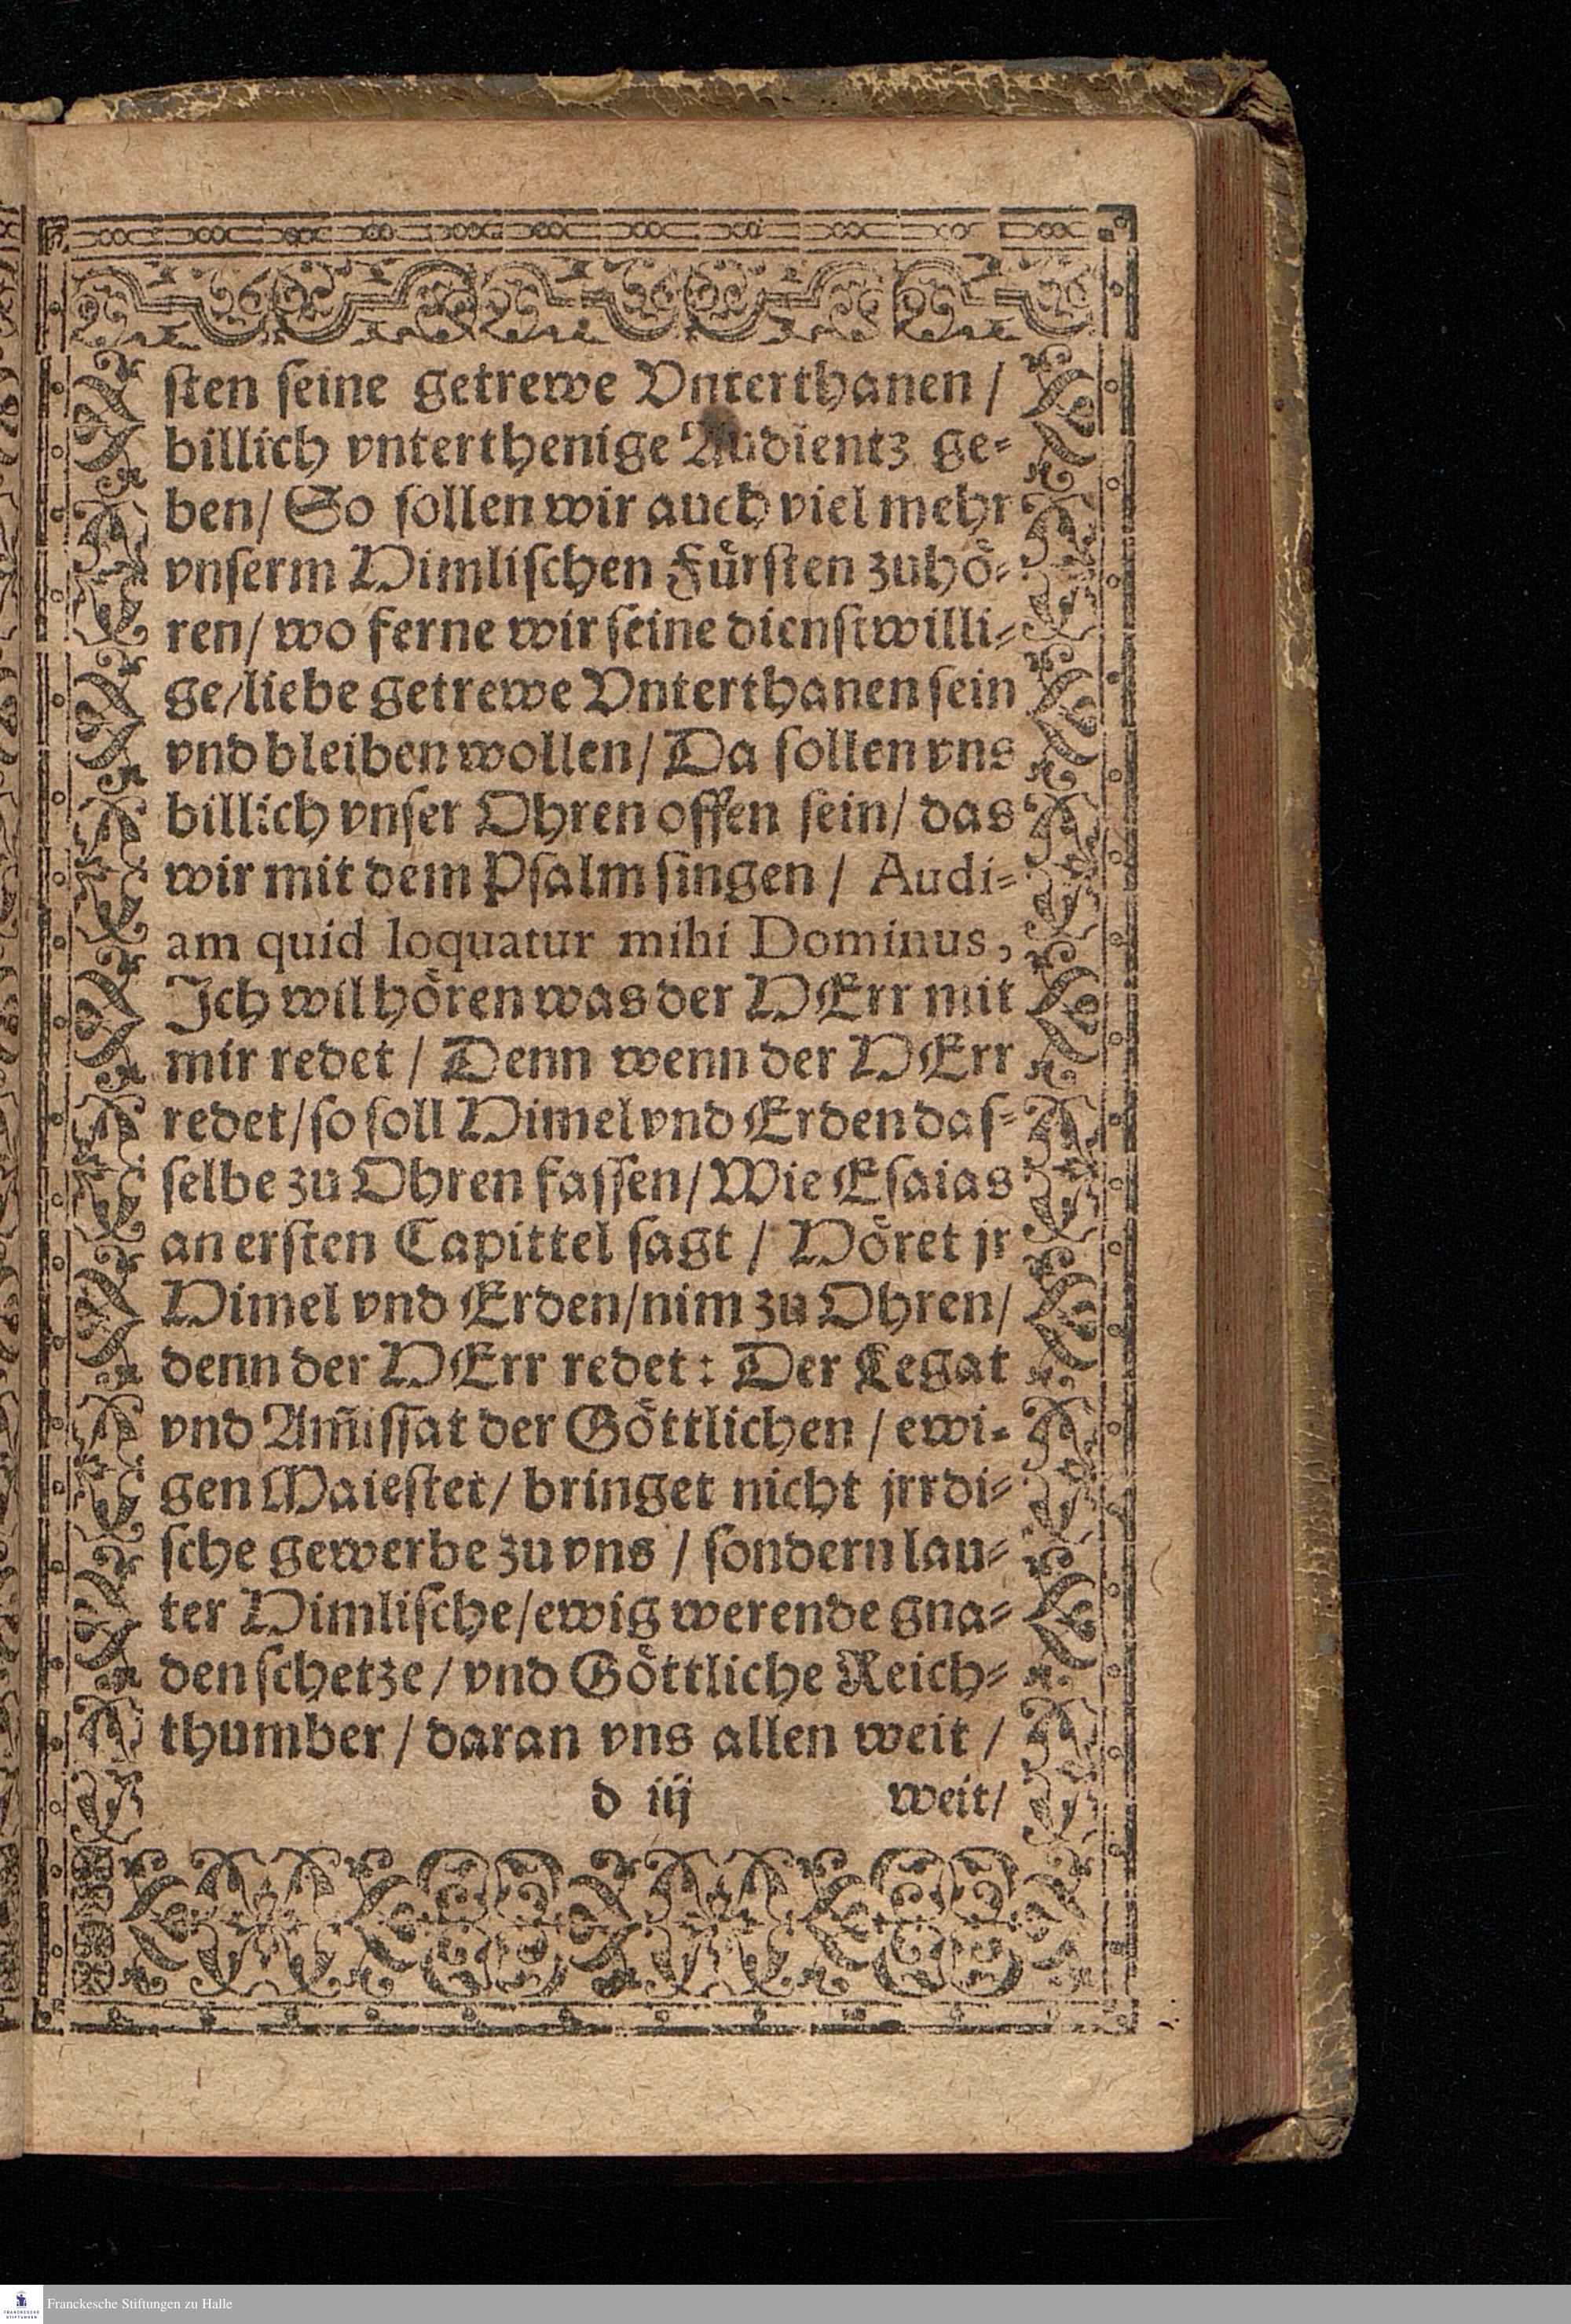 ſten ſeine getrewe Vnterthanen /
billich vnterthenige Audientz ge⸗
ben/ So ſollen wir auch viel mehr
vnſerm Himliſchen Fuͤrſten zuhoͤ⸗
ren/ wo ferne wir ſeine dienſtwilli⸗
ge/liebe getrewe Vnterthanen ſein
vnd bleiben wollen/ Da ſollen vns
billich vnſer Ohren offen ſein/ das
wir mit dem Pſalm ſingen / Audi⸗
am quid loquatur mihi Dominus,
Ich wil hoͤren was der HErr mit
mir redet / Denn wenn der HErr
redet/ſo ſoll Himel vnd Erden daſ⸗
ſelbe zu Ohren faſſen/ Wie Eſaias
an erſten Capittel ſagt / Hoͤret jr
Himel vnd Erden/nim zu Ohren/
denn der HErr redet: Der Legat
vnd Am̃iſſat der Goͤttlichen / ewi⸗
gen Maieſtet/ bringet nicht jrrdi⸗
ſche gewerbe zu vns / ſondern lau⸗
ter Himliſche/ewig werende gna⸗
den ſchetze / vnd Goͤttliche Reich⸗
thumber / daran vns allen weit /
d iij weit/
FRANCKESCHE STIFTUNGEN
Franckesche Stiftungen zu Halle